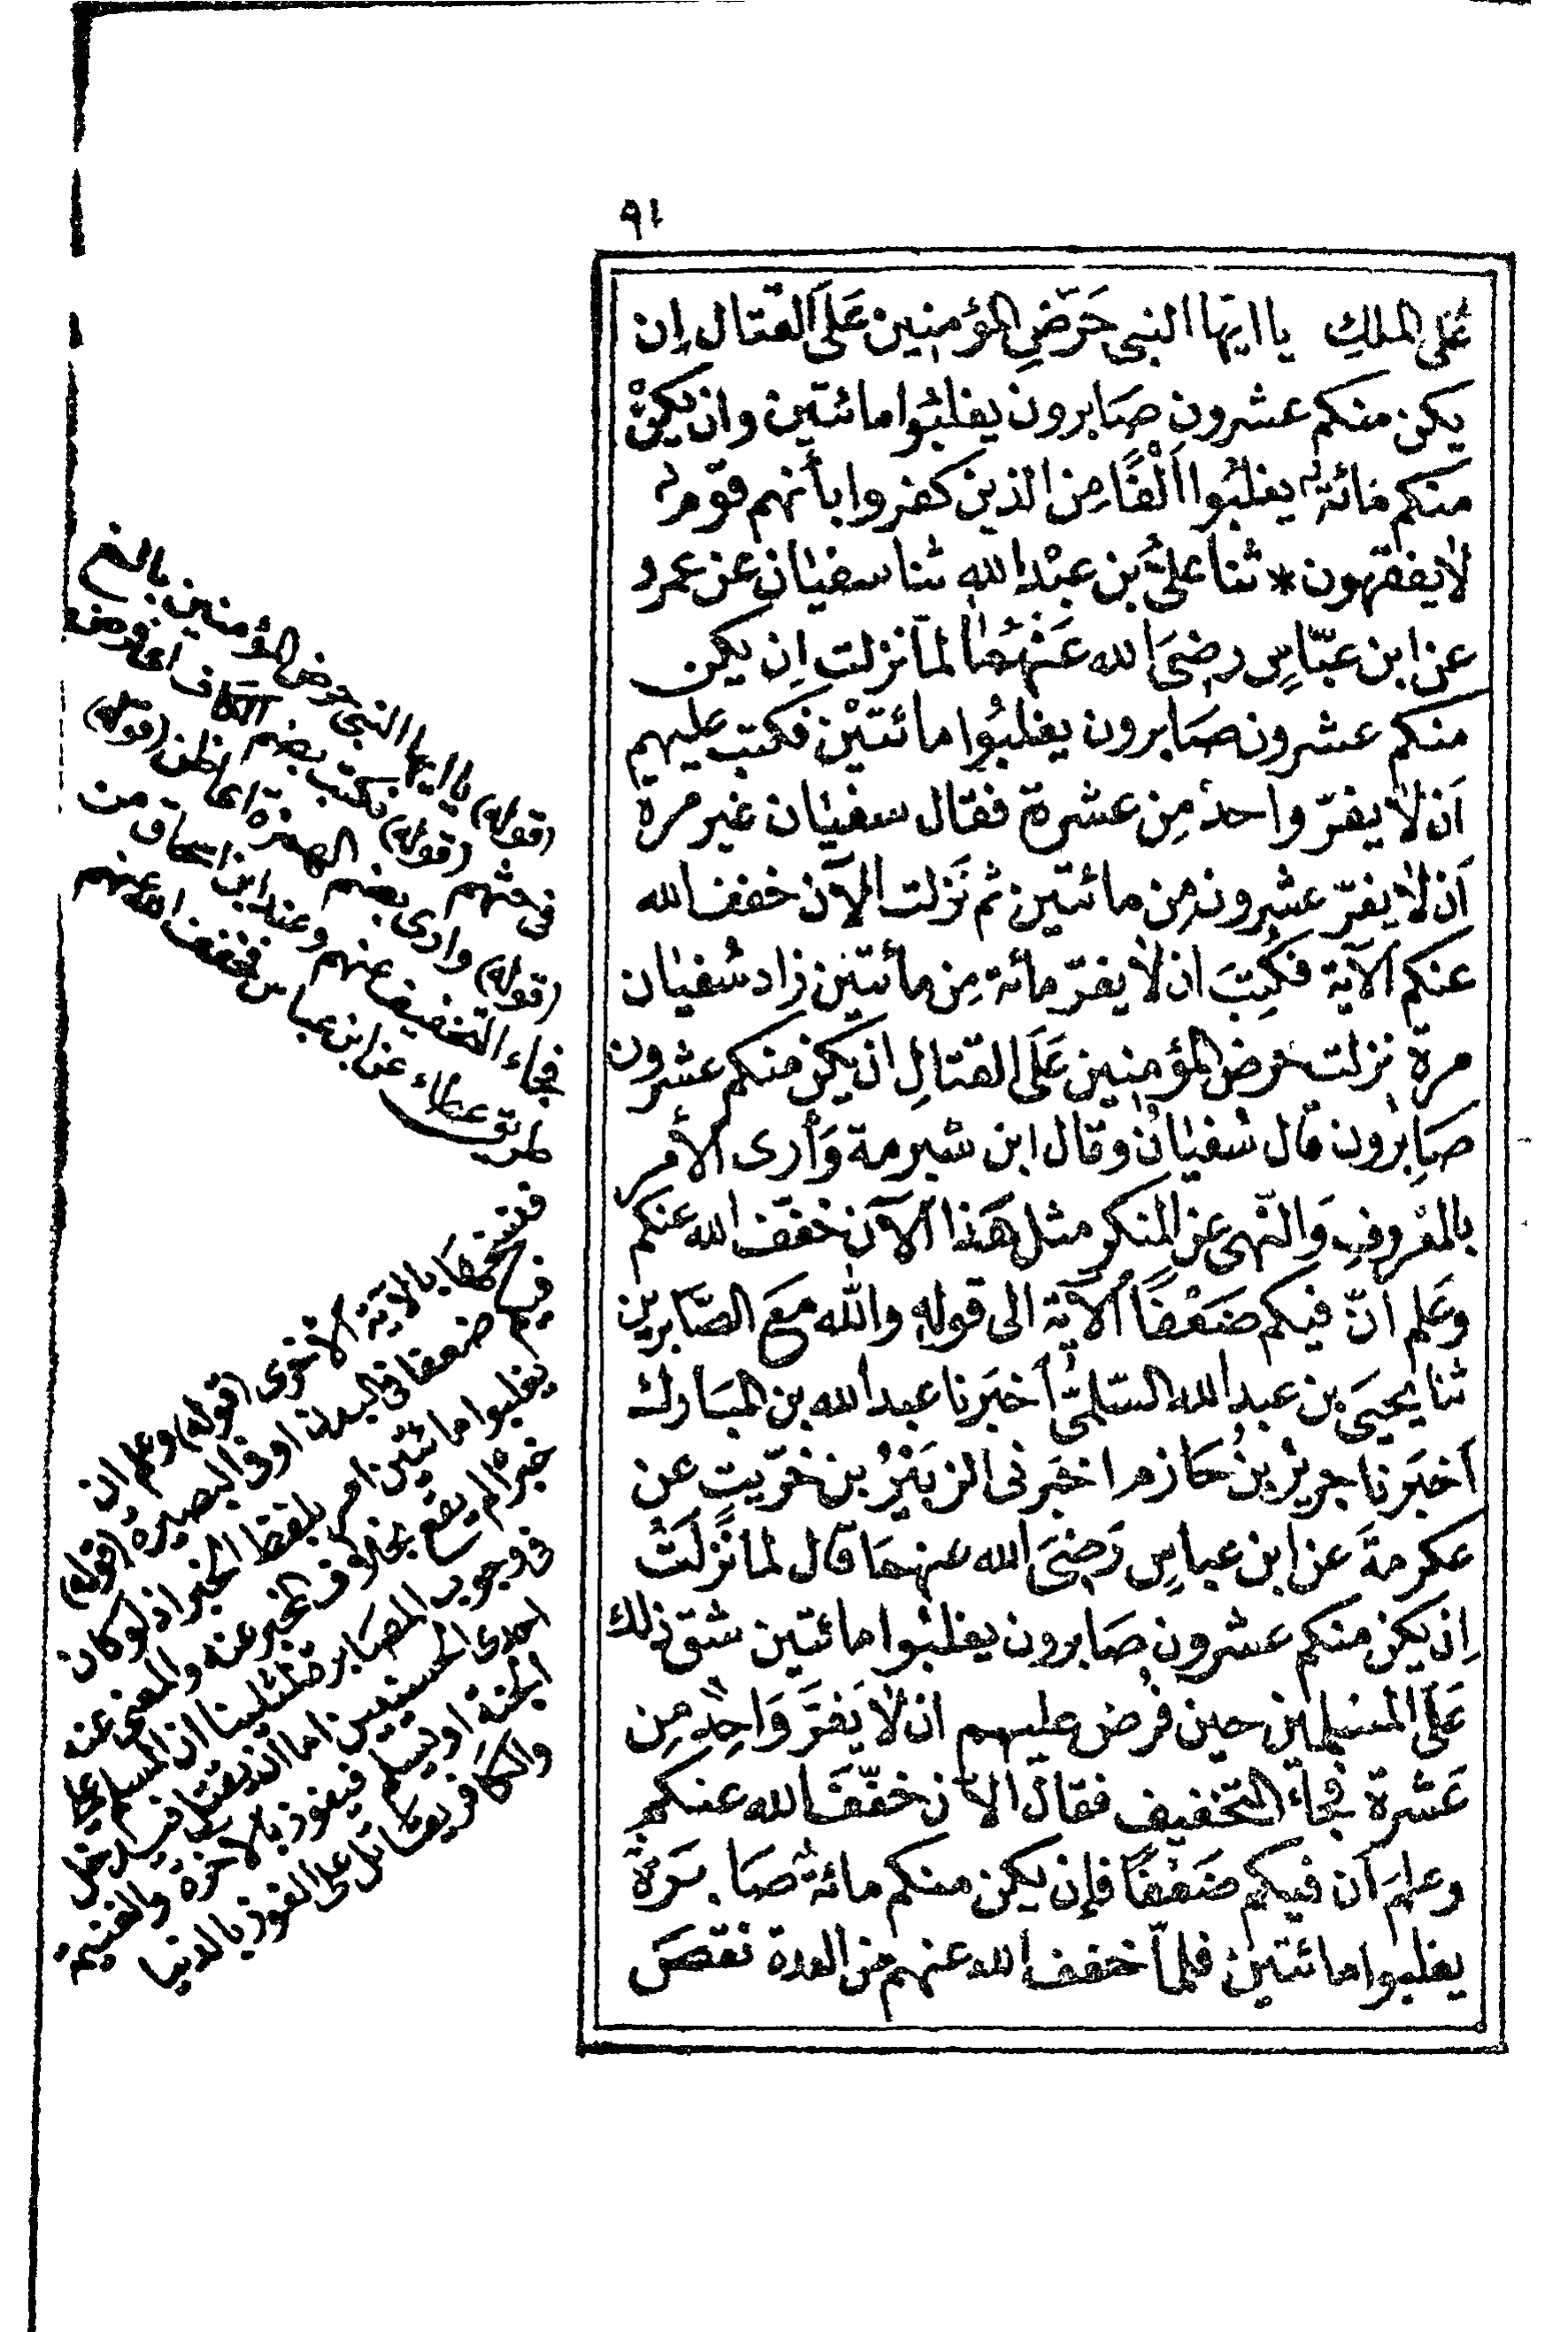 ٩١
عَلى الملكِ يا ايّها النبى حَرّضِ المؤمنين عَلَى القتال إِن
يكن منكم عشرون صَابرون يغلبُوا مائتين وان يكنْ
منكم مائة يغلبُوا اَلْفًا مِن الذين كفروا بأنهم قوم
لا يفقهون * ثنا علىُّ بن عبْد الله ثنا سفيٰان عن عمرو
عن ابن عبّاسٍ رضىَ الله عَنْهُما لما نزلت اِن يكن
منكم عشرون صَابرون يغلبُوا مائتيْن فكتب عليهم
اَن لا يفرّ واحدٌ مِن عشرة فقال سفيٰان غير مرة
اَن لا يفرّ عشرون مِن مائتين ثم نَزلت الآن خفف الله
عنكم الآية فكُتِبَ ان لا يفرّ مائة مِن مائتين زاد سُفيٰان
مرة نزلت حرض المؤمنين عَلَى القتالِ ان يكن منكم عشرون
صَابِرون قال سُفيٰانُ وقال ابن شبرمة وَأرى الأمر
بالمعْروفِ وَالنّهى عن المنكر مثل هَذا الآن خفّف الله عنكم
وعَلم انّ فيكم ضَعْفًا الآية الى قولهِ والله مَعَ الصّابرين
ثنا يحيىَ بن عبد الله السّلمىُّ أخبَرنا عبد الله بن المبَارك
اَخبَرنا جريرُ بنُ حَازم اخبَرنى الزبَيْرُ بن خرّيتٍ عن
عكرمةَ عن ابن عباسٍ رَضىَ الله عنهمَا قال لما نزلَتْ
اِن يكن منكم عشرون صَابرون يغلبُوا مائتين شق ذلك
عَلَى المسْلمين حين فُرض عليهم ان لا يَفرَّ وَاحِدٌ مِن
عَشرة فجاءَ التخفيف فقال الآن خفّفَ الله عنكم
وعلمَ اَن فيكم ضَعْفًا فإن يكن منكم مائةٌ صَابرَةٌ
يغلبوا مائتين فلمّا خفف الله عنهم من العدة نقصَ
(قوله) يا ايها النبى حرض المؤمنين بالغ
فى حثهم (قوله) فكتب بضم الكاف اى فرض
(قوله) وارى بضم الهمزة اى اظن (قوله)
فجاء التخفيف عنهم وعند ابن اسحاق من
طريق عطاء عن ابن عباس فخفف الله عنهم
فنسخها بالآية الاخرى (قوله) وعلم ان
فيكم ضعفا فى البدن او فى البصيرة (قوله)
يغلبوا مائتين امر بلفظ الخبر اذ لو كان
خبرًا لم يقع بخلاف المخبر عنه والمعنى عنه
فى وجوب المصَابرة لمثلينا ان المسلم على
احدى الحسنيين اما ان يقتل فيدخل
الجنة او يسلم فيفوز بالاجرة والغنيمة
والكافر يقاتل على الفوز بالدنيا